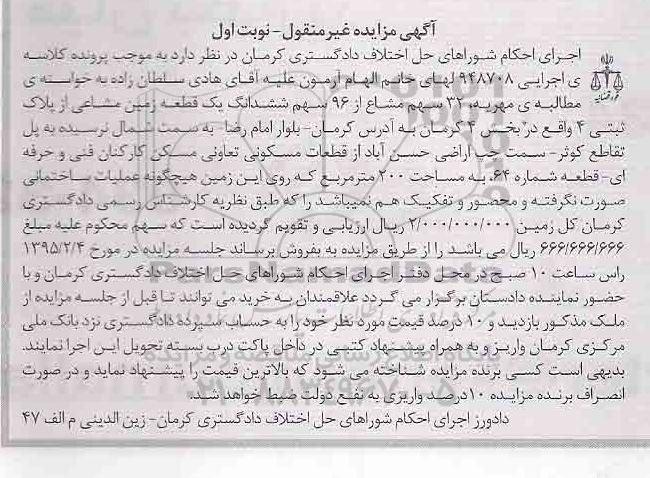 آگهی مزایده غیرمنقول - نوبت اول
اجرای احکام شوراهای حل اختلاف دادگستری کرمان در نظر دارد به موجب پرونده کلاسه
ی اجرایی ۹۴۸۷۰۸ لهای خانم الهام آزمون علیه آقای هادی سلطان زاده به خواسته ی
مطالبه ی مهریه، ۳۲ سهم مشاع از ۹۶ سهم ششدانگ یک قطعه زمین مشاعی از پلاک
ثبتی ۴ واقع در بخش ۴ کرمان به آدرس کرمان- بلوار امام رضا- به سمت شمال نرسیده به پل
تقاطع کوثر- سمت چپ اراضی حسن آباد از قطعات مسکونی تعاونی مسکن کارکنان فنی و حرفه
ای- قطعه شماره ۶۴، به مساحت ۲۰۰ مترمربع که روی این زمین هیچگونه عملیات ساختمانی
صورت نگرفته و محصور و تفکیک هم نمیباشد را که طبق نظریه کارشناس رسمی دادگستری
کرمان کل زمین ۲/۰۰۰/۰۰۰/۰۰۰ ریال ارزیابی و تقویم گردیده است که سهم محکوم علیه مبلغ
۶۶۶/۶۶۶/۶۶۶ ریال می باشد را از طریق مزایده به بفروش برساند جلسه مزایده در مورخ ۱۳۹۵/۲/۴
راس ساعت ۱۰ صبح در محل دفتر اجرای احکام شوراهای حل اختلاف دادگستری کرمان و با
حضور نماینده دادستان برگزار می گردد علاقمندان به خرید می توانند تا قبل از جلسه مزایده از
ملک مذکور بازدید و ۱۰ درصد قیمت مورد نظر خود را به حساب سپرده دادگستری نزد بانک ملی
مرکزی کرمان واریز و به همراه پیشنهاد کتبی در داخل پاکت درب بسته تحویل این اجرا نمایند.
بدیهی است کسی برنده مزایده شناخته می شود که بالاترین قیمت را پیشنهاد نماید و در صورت
انصراف برنده مزایده ۱۰درصد واریزی به نفع دولت ضبط خواهد شد.
دادورز اجرای احکام شوراهای حل اختلاف دادگستری کرمان- زین الدینی م الف ۴۷